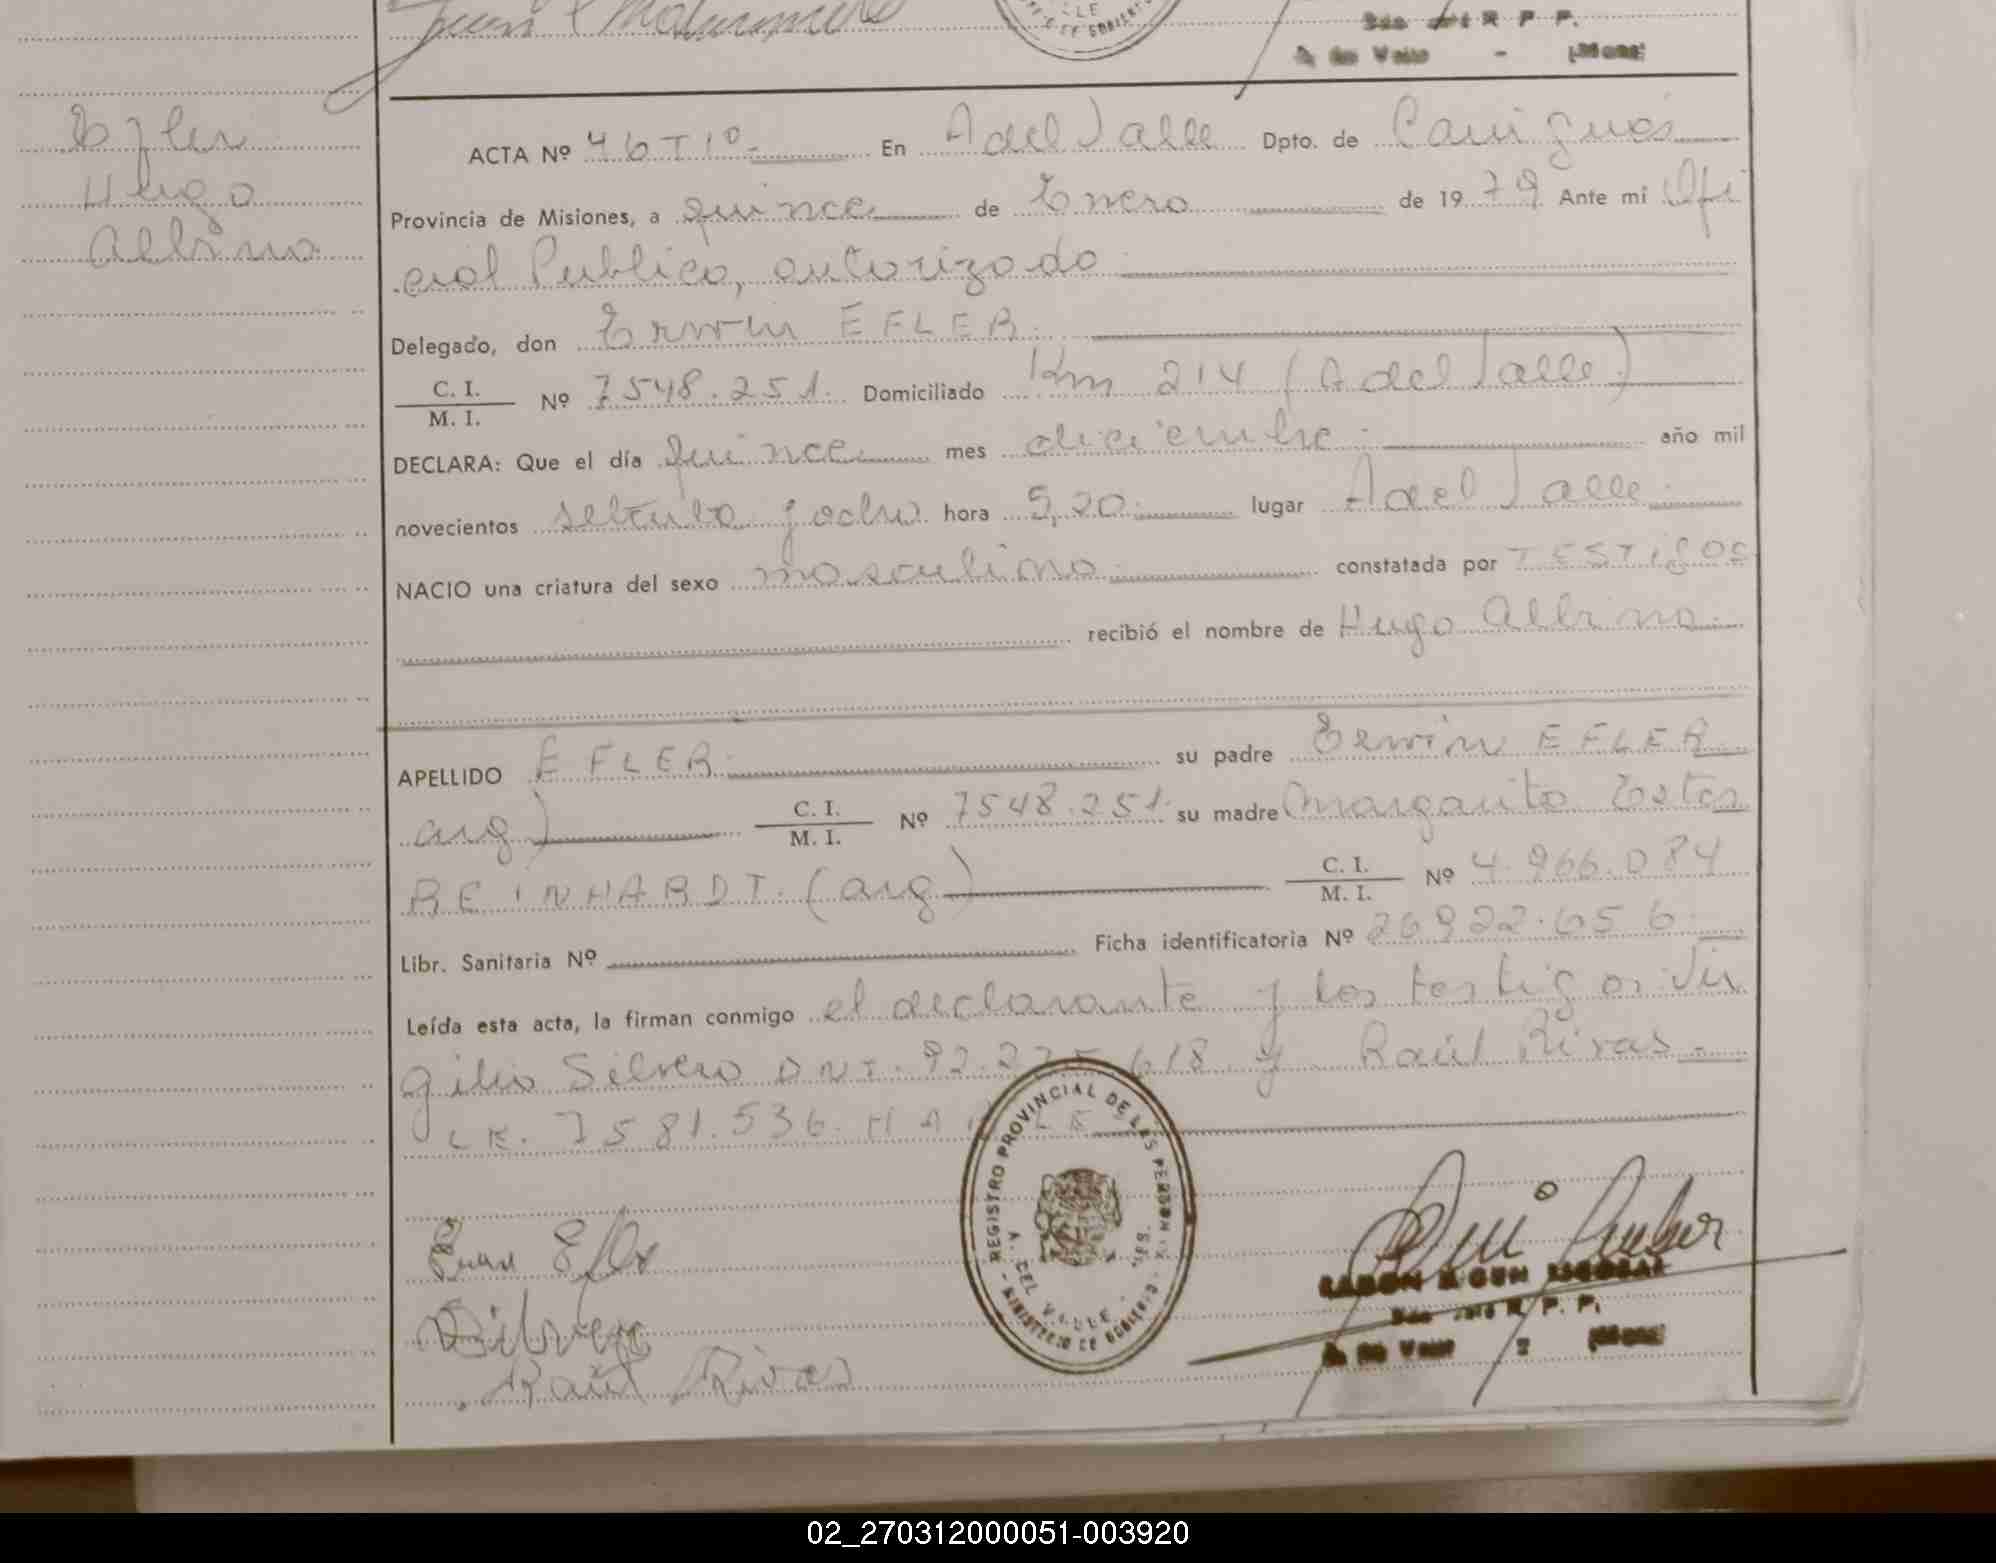 Efler
Hugo
Albino
ACTA Nº 46 T 1º En A del Valle Dpto. de Cainguás
Provincia de Misiones, a quince de Enero de 1979 Ante mi Ofi
cial Publico, autorizado
Delegado, don Erwin EFLER
C. I.
M. I. Nº 7548.251. Domiciliado Km 214 (A del Valle)
DECLARA: Que el día quince mes diciembre año mil
novecientos setenta y ocho hora 5,20 lugar A del Valle
NACIO una criatura del sexo masculino constatada por TESTIGOS
recibió el nombre de Hugo Albino
APELLIDO EFLER su padre Erwin EFLER
arg) C. I.
M. I. Nº 7548.251. su madre Margarita
REINHARDT. (arg) C. I.
M. I. Nº 4.966.084
Libr. Sanitaria Nº Ficha identificatoria Nº 26922.656
Leída esta acta, la firman conmigo el declarante y los testigos Vir
gilio Silvero DNI. 92.275.618 y Raúl Rivas
LE. 7581.536. HAVLE
REGISTRO PROVINCIAL DE LAS PERSONAS
A. DEL VALLE - MS.
- MINISTERIO DE GOBIERNO -
R. P. P.
A. del Valle - (Mnes)
Raúl Rivas
02_270312000051-003920